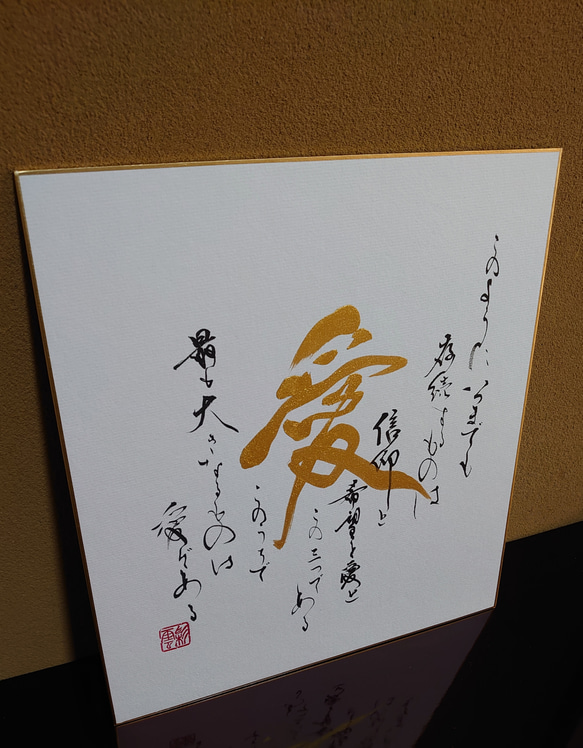 このようにいつまでも
存続するものは
信仰と
希望と愛と
この三つである
愛
このうちで
最も大きいなるものは
愛である